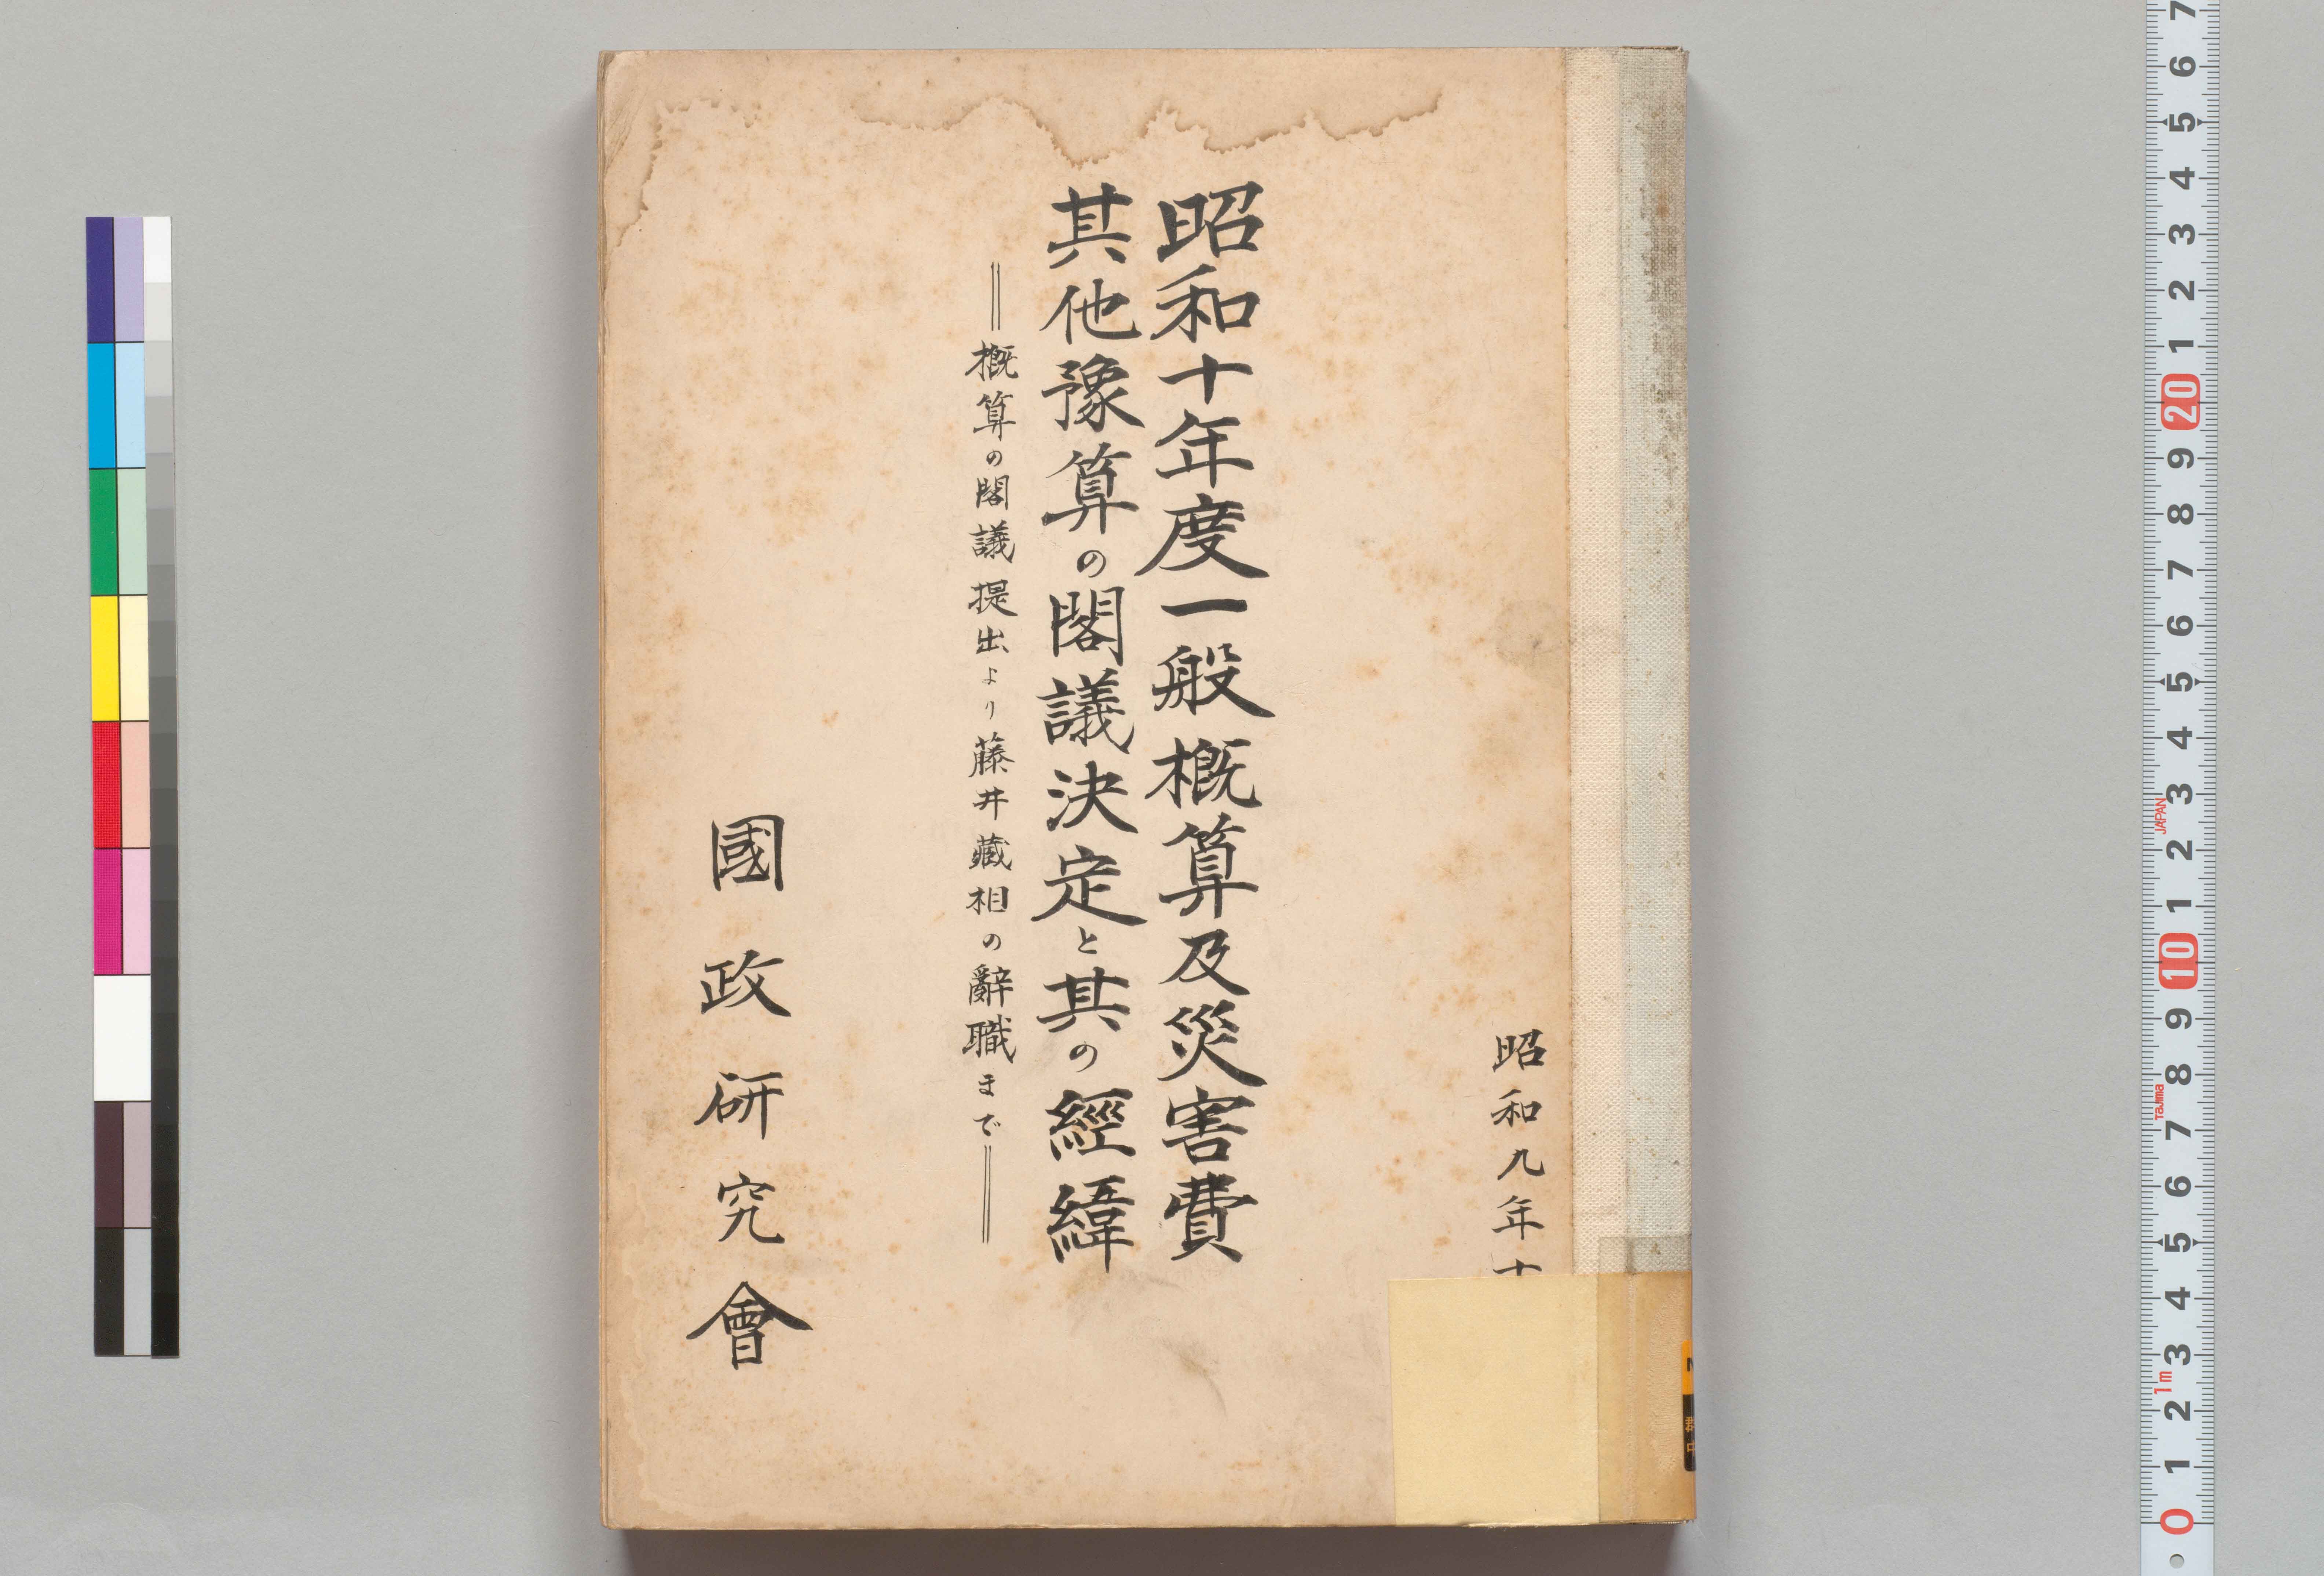 昭和九年十
昭和十年度一般概算及災害費
其他豫算の閣議決定と其の經緯
＝概算の閣議提出より藤井藏相の辭職まで＝
國政研究會
7
6
5
4
3
2
1
20
9
8
7
6
5
4
3
JAPAN
2
1
10
9
8
Tajima
7
6
5
4
3
1m
2
1
0